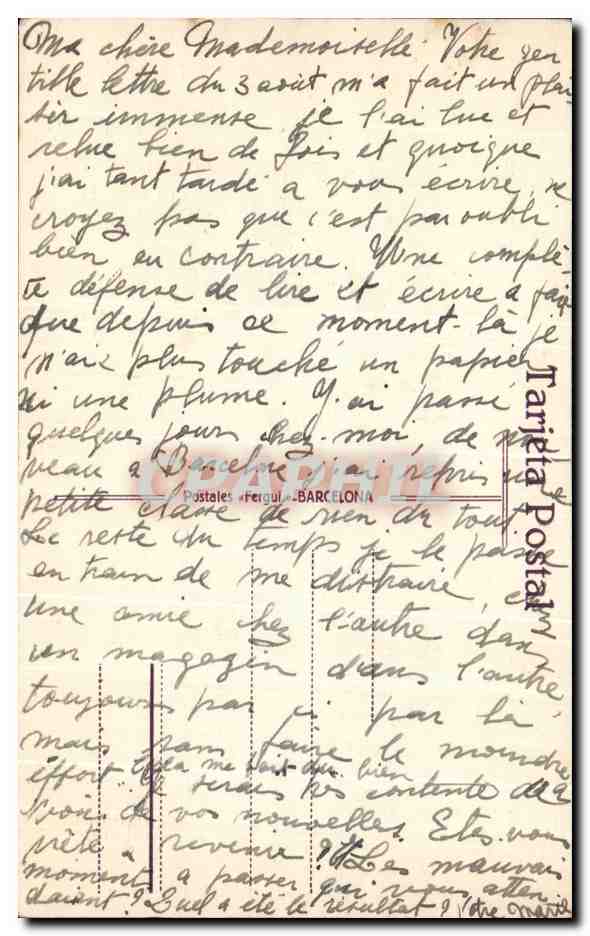 Ma chère Mademoiselle. Votre gen
tille lettre du 3 août m'a fait un plai-
sir immense je l'ai lue et
relue bien de fois et quoique
j'ai tant tardé a vous écrire, ne
croyez pas que c'est par oubli
bien au contraire. Une complè-
te défense de lire et écrire a fait
que depuis ce moment-là je
n'aie plus touché un papier
ni une plume. J'ai passé
quelques jours chez-moi, de nou
veau à Barcelone j'ai repris une
petite classe de rien du tout
Le reste du temps je le passe
en train de me distraire, chez
une amie chez l'autre dans
un magazin dans l'autre
toujours par ci par là
mais sans faire le moindre
éffort cela me fait du bien
Je serais très contente d'a
voir de vos nouvelles. Etes-vous
prête à revenir? Les mauvais
moments a passer qui vous atten
daient? Quel a été le résultat? Votre
Tarjeta Postal
Postales «Fergui»-BARCELONA
CPARAMA